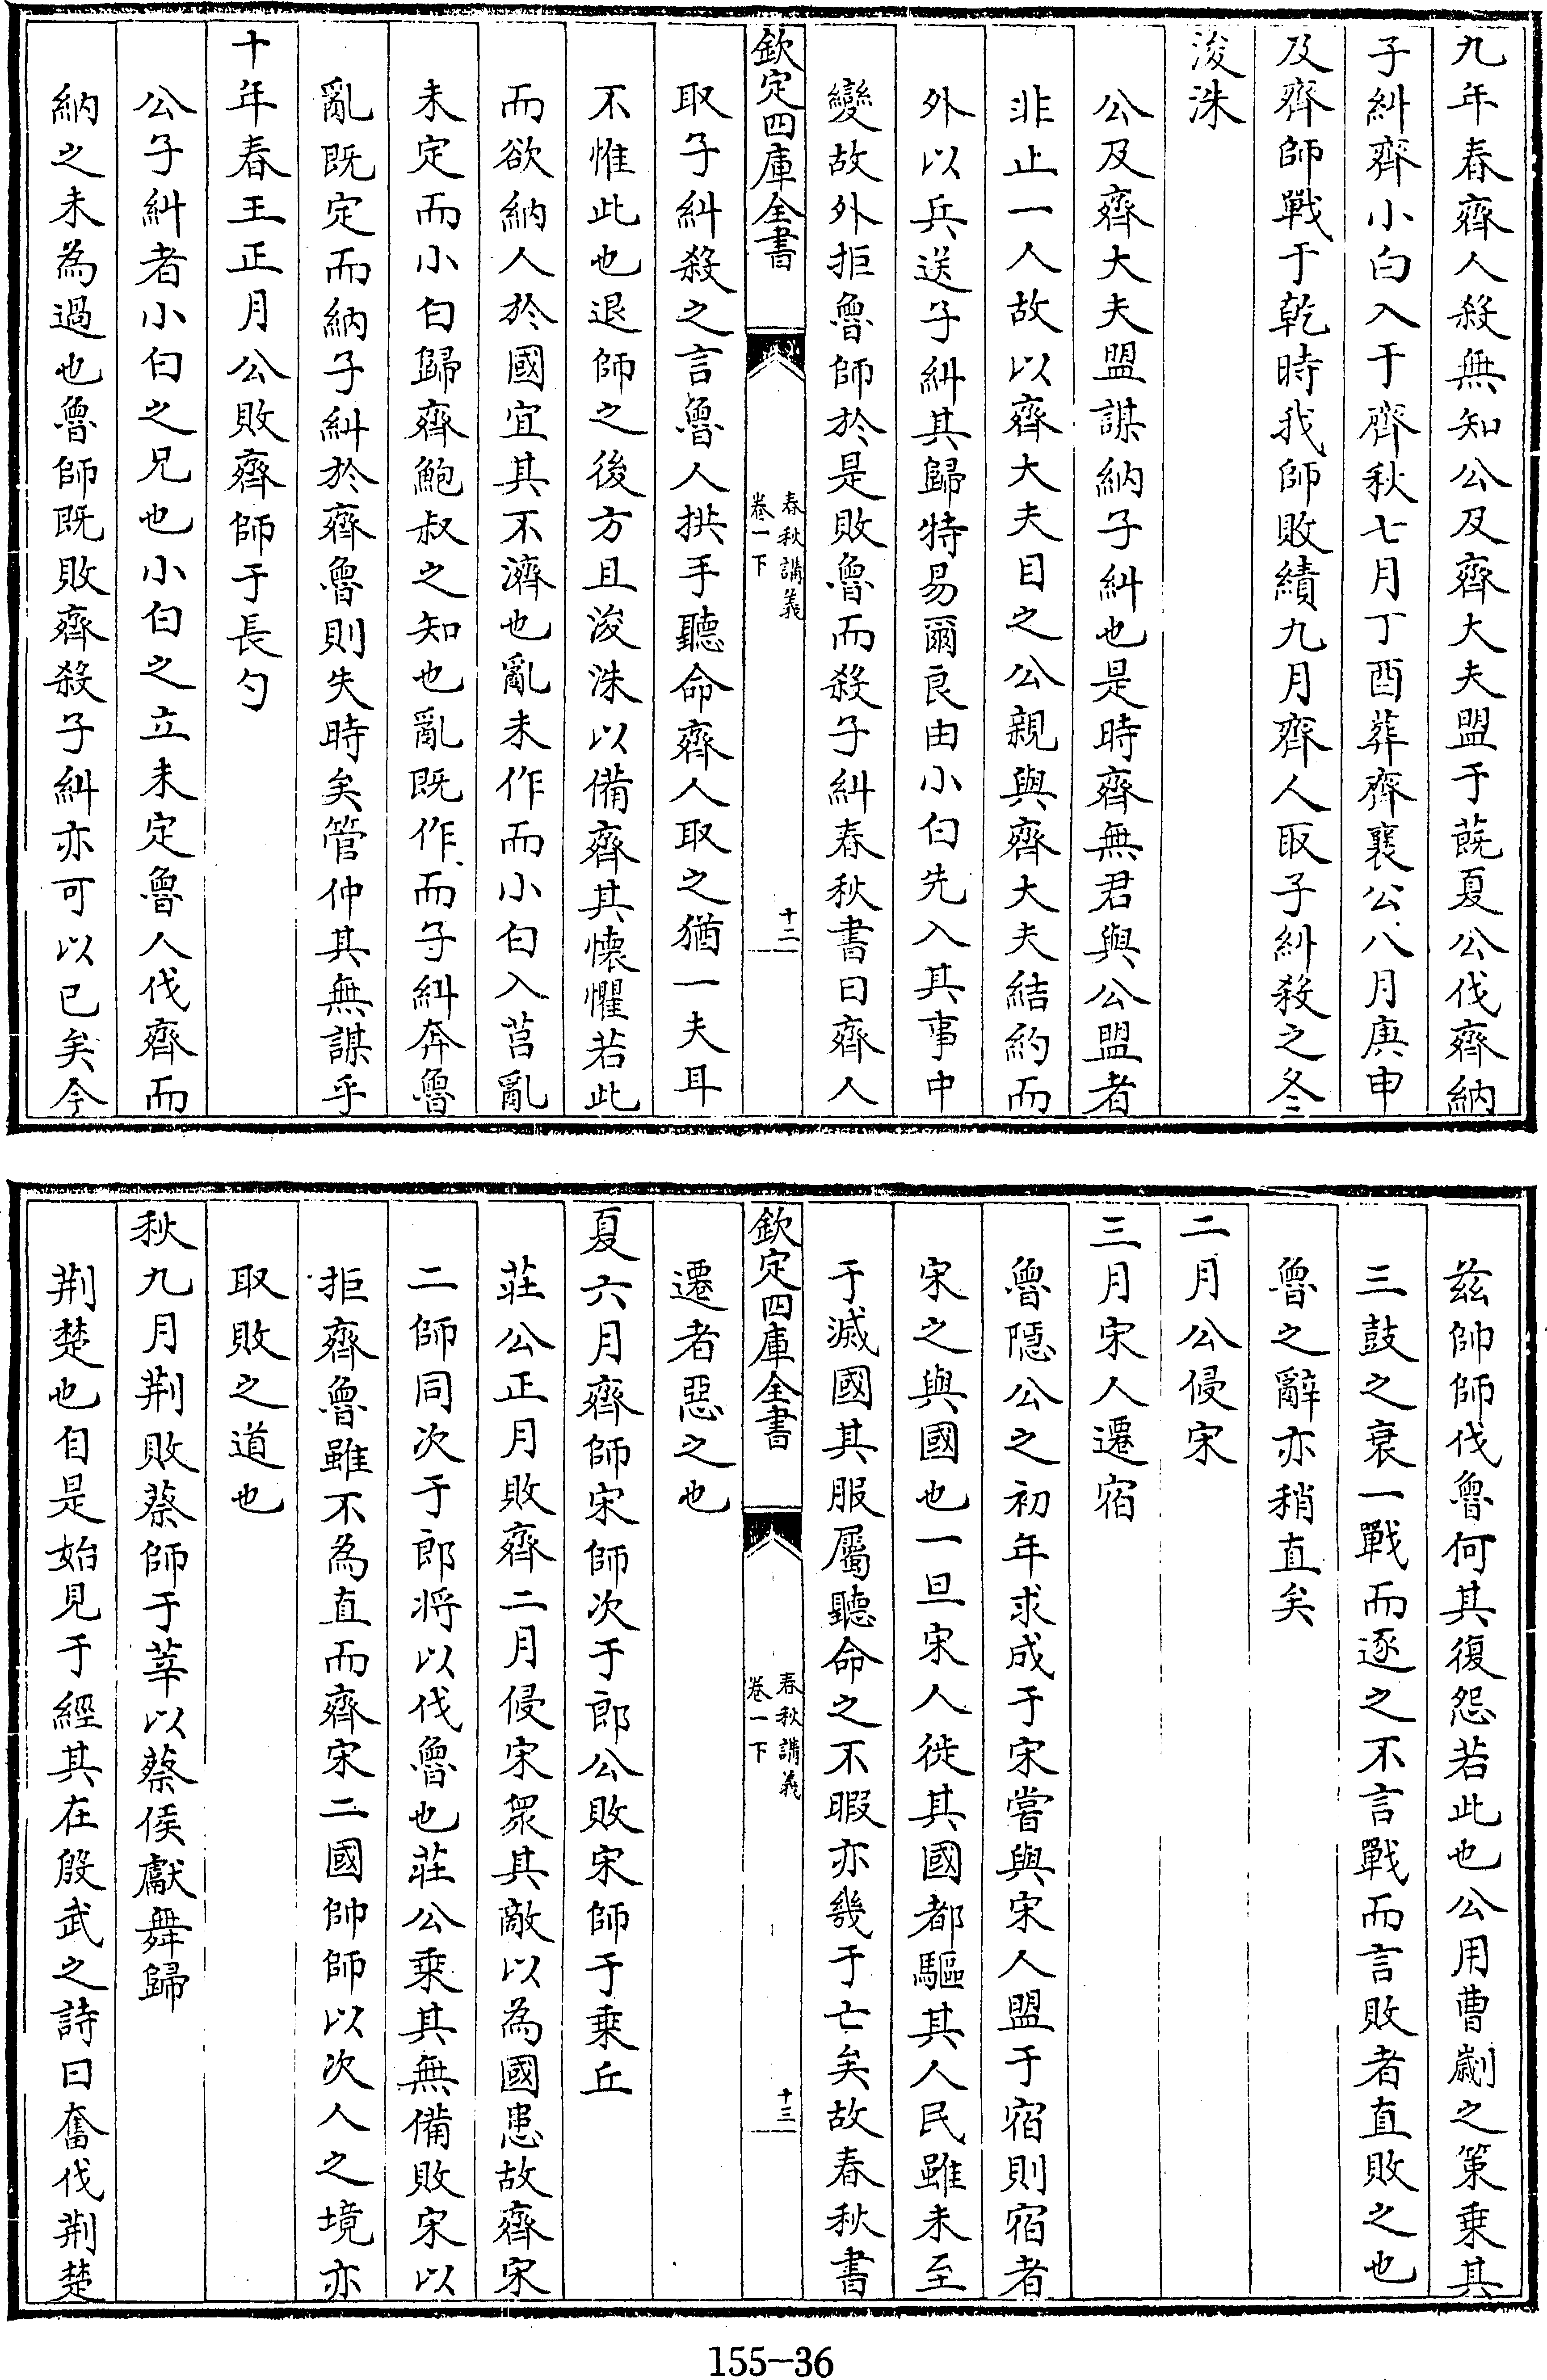 九年春齊人殺無知公及齊大夫盟于蔇夏公伐齊納
子糾齊小白入于齊秋七月丁酉葬齊襄公八月庚申
及齊師戰于乾時我師敗績九月齊人取子糾殺之冬
浚洙
公及齊大夫盟謀納子糾也是時齊無君與公盟者
非止一人故以齊大夫目之公親與齊大夫結約而
外以兵送子糾其歸特易爾良由小白先入其事中
變故外拒魯師於是敗魯而殺子糾春秋書曰齊人
欽定四庫全書
春秋講義
卷一下
十二
取子糾殺之言魯人拱手聽命齊人取之猶一夫耳
不惟此也退師之後方且浚洙以備齊其懐懼若此
而欲納人於國宜其不濟也亂未作而小白入莒亂
未定而小白歸齊鮑叔之知也亂既作而子糾奔魯
亂既定而納子糾於齊魯則失時矣管仲其無謀乎
十年春王正月公敗齊師于長勺
公子糾者小白之兄也小白之立未定魯人伐齊而
納之未為過也魯師既敗齊殺子糾亦可以已矣今
兹帥師伐魯何其復怨若此也公用曹劌之策乗其
三鼓之衰一戰而逐之不言戰而言敗者直敗之也
魯之辭亦稍直矣
二月公侵宋
三月宋人遷宿
魯隠公之初年求成于宋嘗與宋人盟于宿則宿者
宋之與國也一旦宋人徙其國都驅其人民雖未至
于滅國其服屬聽命之不暇亦幾于亡矣故春秋書
欽定四庫全書
春秋講義
卷一下
十三
遷者惡之也
夏六月齊師宋師次于郎公敗宋師于乗丘
莊公正月敗齊二月侵宋衆其敵以為國患故齊宋
二師同次于郎将以伐魯也莊公乗其無備敗宋以
拒齊魯雖不為直而齊宋二國帥師以次人之境亦
取敗之道也
秋九月荆敗蔡師于莘以蔡侯獻舞歸
荆楚也自是始見于經其在殷武之詩曰奮伐荆楚
155-36